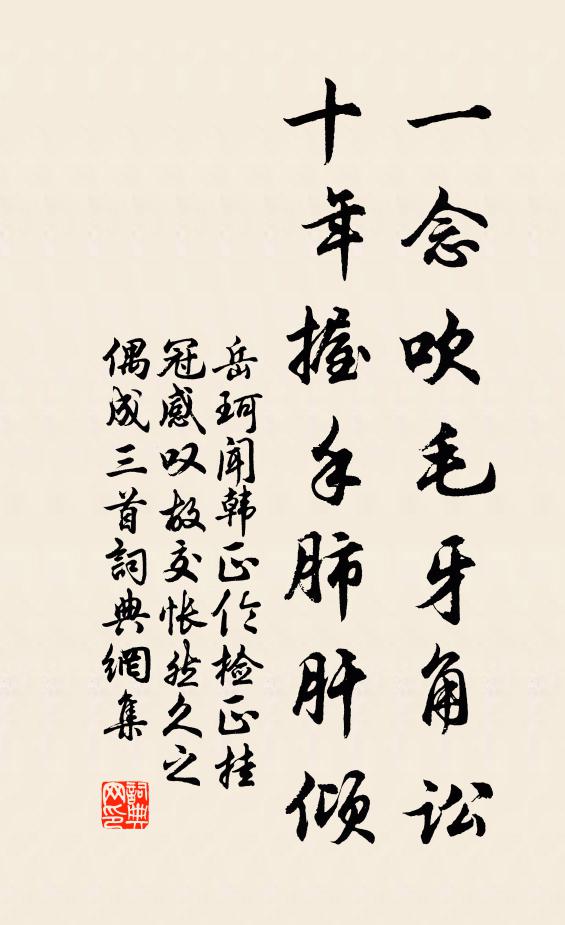 一念吹毛牙角讼
十年握手肺肝倾
岳珂闻韩正伦检正挂
冠感叹故交怅然久之
偶成三首詞典網集
詞典网印